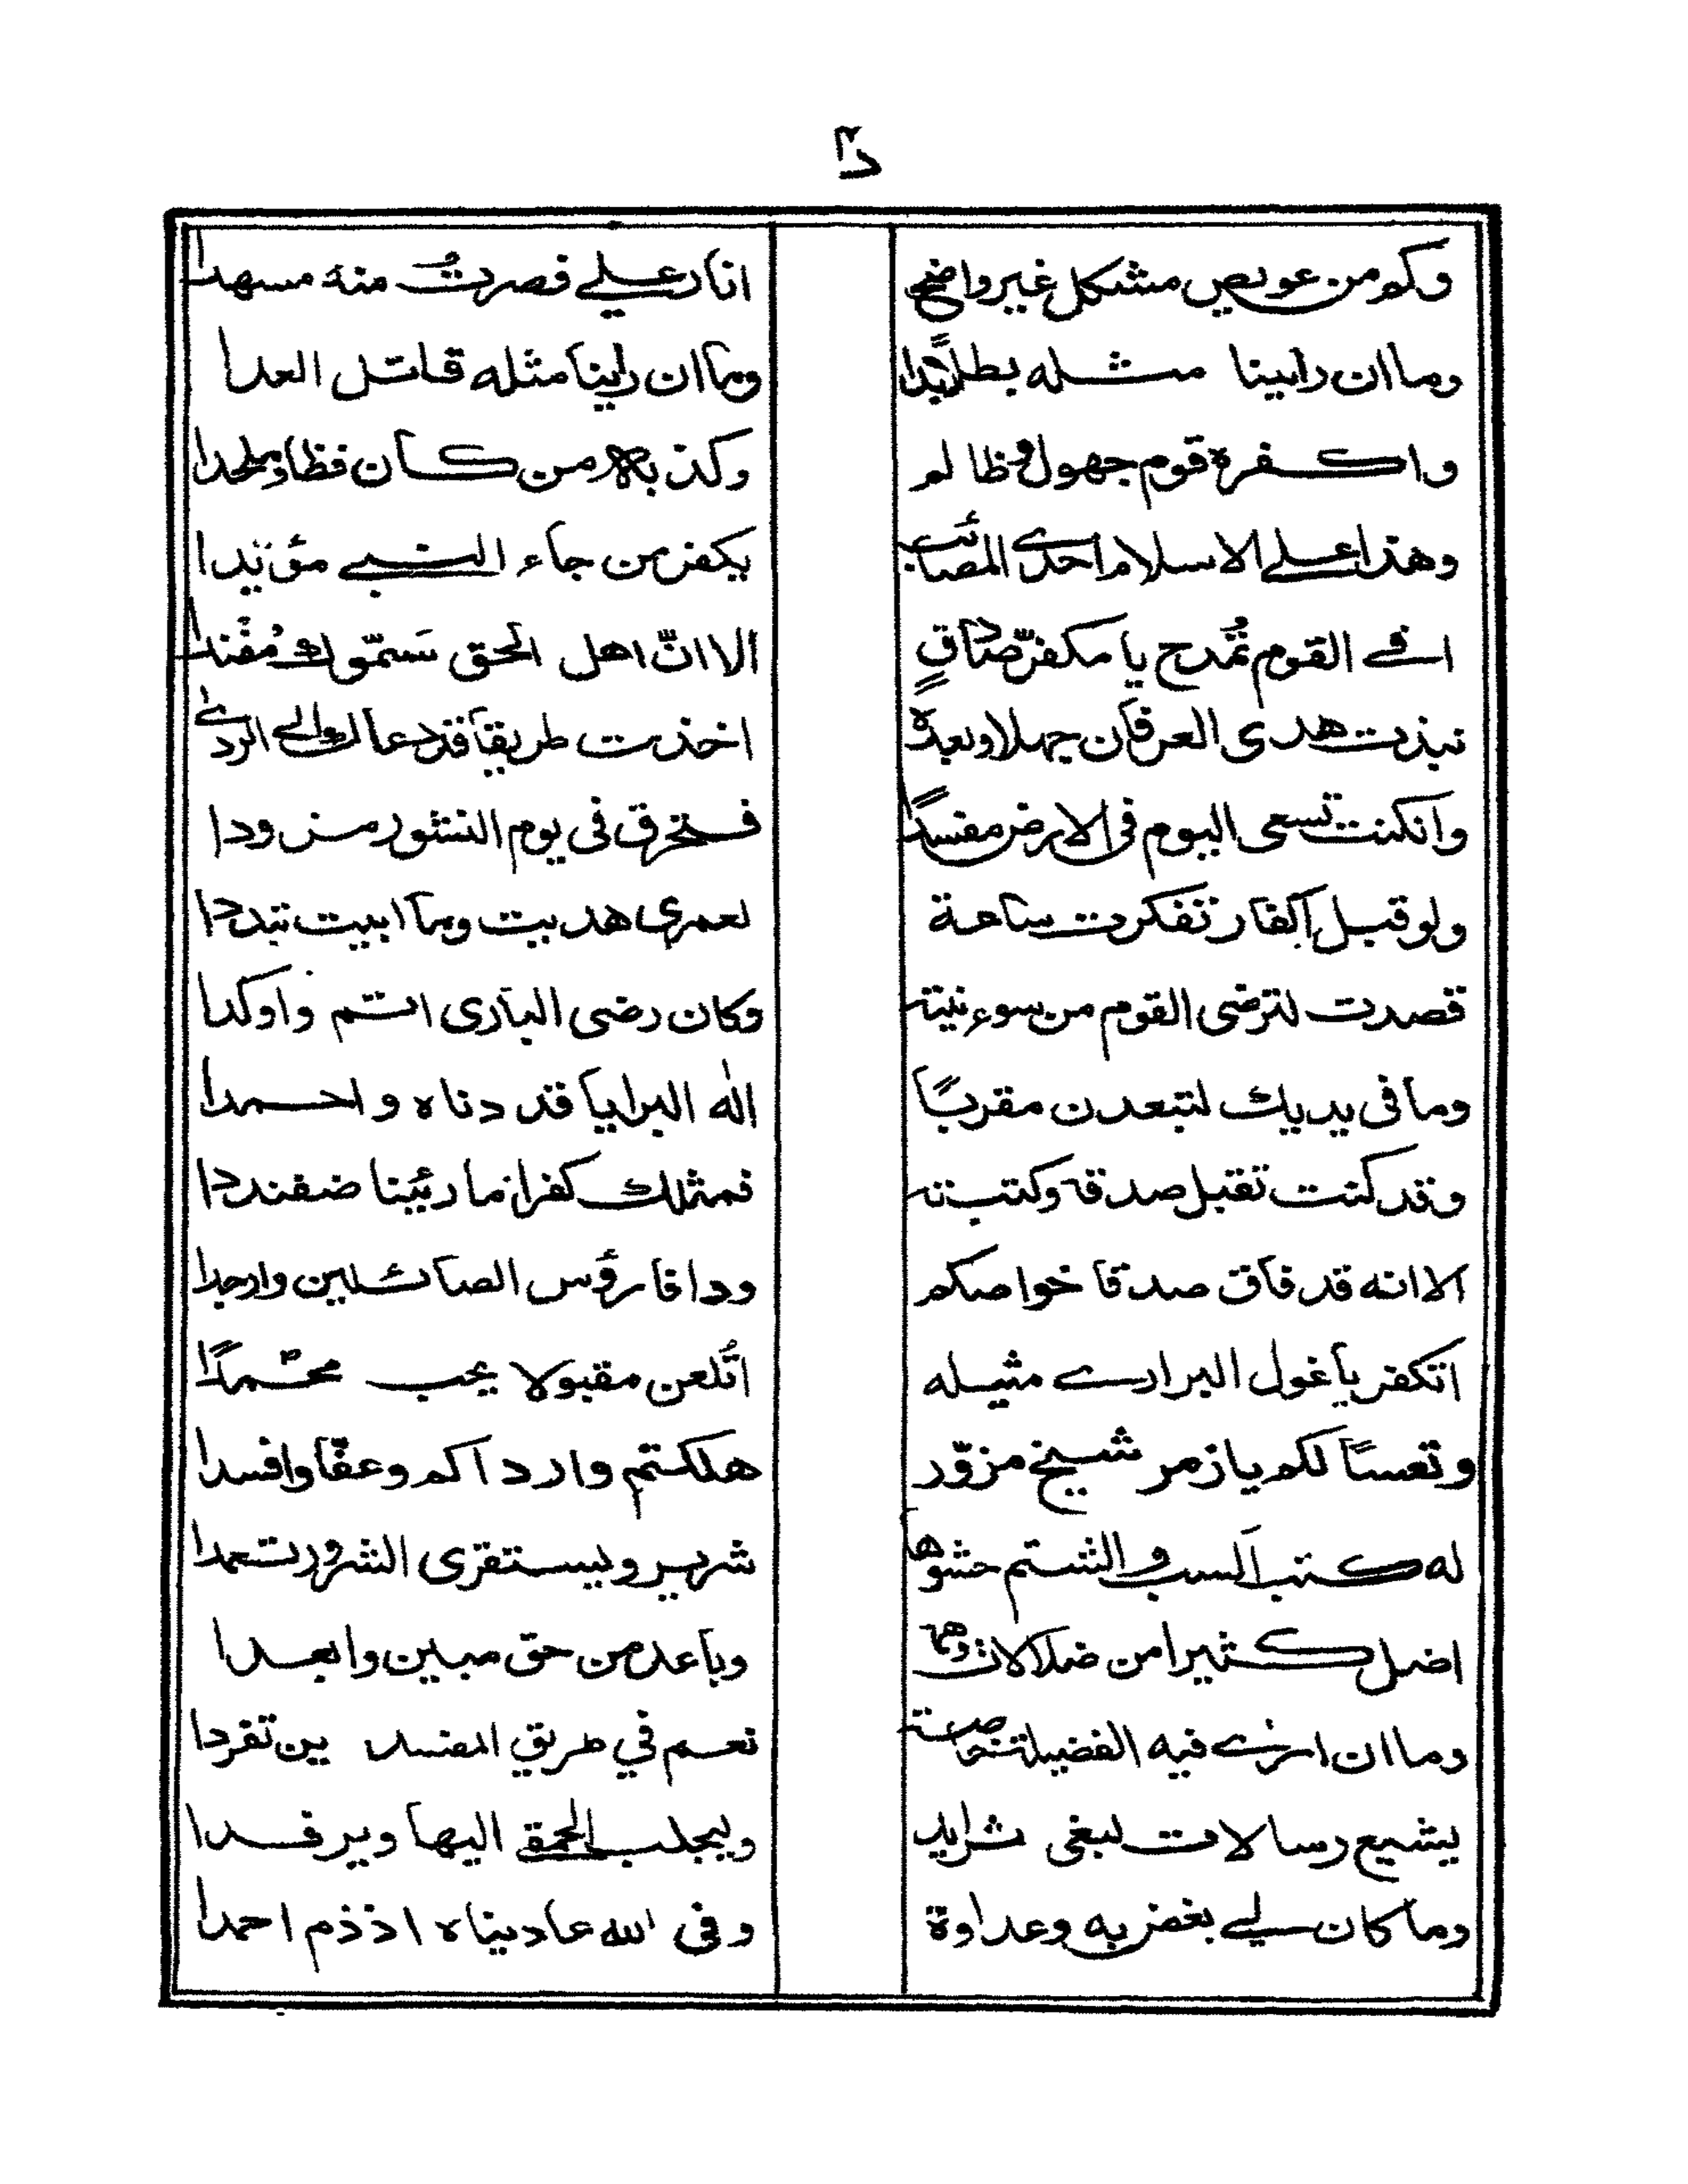 وكم من عويص مشكل غير واضح انار علي فصرت منه مسهدا
وما ان راينا مثله بطلا بدا وما ان راينا مثله قاتل العدا
واكفره قوم جهول وظالم وكذبه من كان فظا وملحدا
وهذا على الاسلام احدى المصائب يكفر من جاء النبي مؤيدا
افي القوم تُمدح يا مكفّر صادقٍ الا انّ اهل الحق سَمّوك مُفندا
نبذت هدى العرفان جهلا وبعده اخذت طريقا قد دعاك الى الردى
وان كنت تسعى اليوم فى الارض مفسدًا فتحرق فى يوم النشور مزودا
ولو قبل اكفار تفكرت ساعة لعمرى هديت وما ابيت تبددا
قصدت لترضى القوم من سوء نيته وكان رضى البارى اتم واوكدا
وما فى يديك لتبعدن مقربًا اله البرايا قد دناه واحمدا
وقد كنت تقبل صدقه وكتبته فمثلك كفرا ما رئينا ضفنددا
الا انه قد فاق صدقا خواصكم ودافا رؤس الصائلين وارجدا
اتكفر يا غول البرارے مثيله اتُلعن مقبولا يحب محمّدًا
وتعسًا لكم يا زمر شيخ مزوّر هلكتم وارداكم وعفّا وافسدا
له كتب السب والشتم حشوها شرير ويستقرى الشرور تعمدا
اضل كثيرا من ضلالات وهما وباعد من حق مبين وابعدا
وما ان ارى فيه الفضيلة خاصة نعم في طريق المفسدين تفردا
يشيع رسالات لبغى ثرايد ويجلب الحمقى اليها ويرفدا
وما كان لي بغض به وعداوة وفى الله عاديناه اذ ذم احمدا